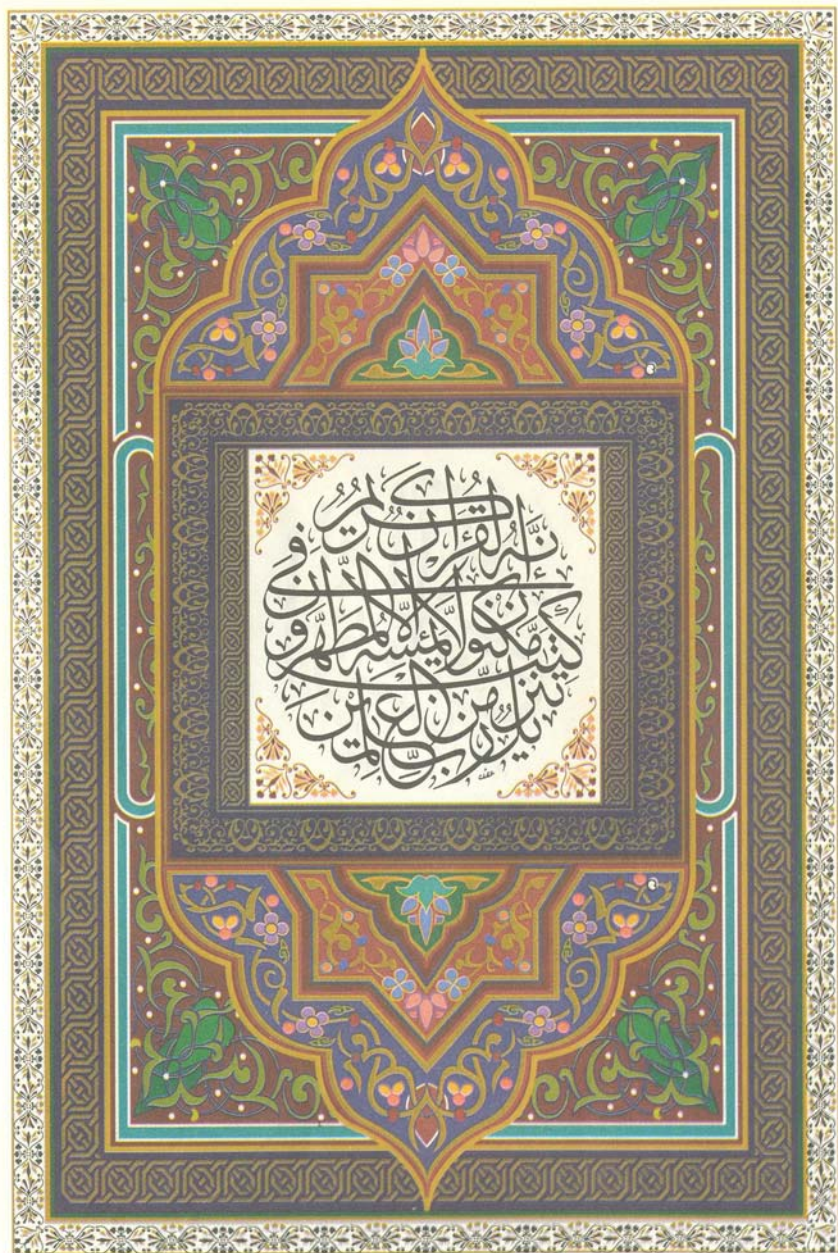 إِنَّهُ لَقُرْآنٌ كَرِيمٌ
فِي كِتَٰبٍ مَّكْنُونٍ لَّا يَمَسُّهُ إِلَّا الْمُطَهَّرُونَ
تَنزِيلٌ مِّن رَّبِّ الْعَٰلَمِينَ